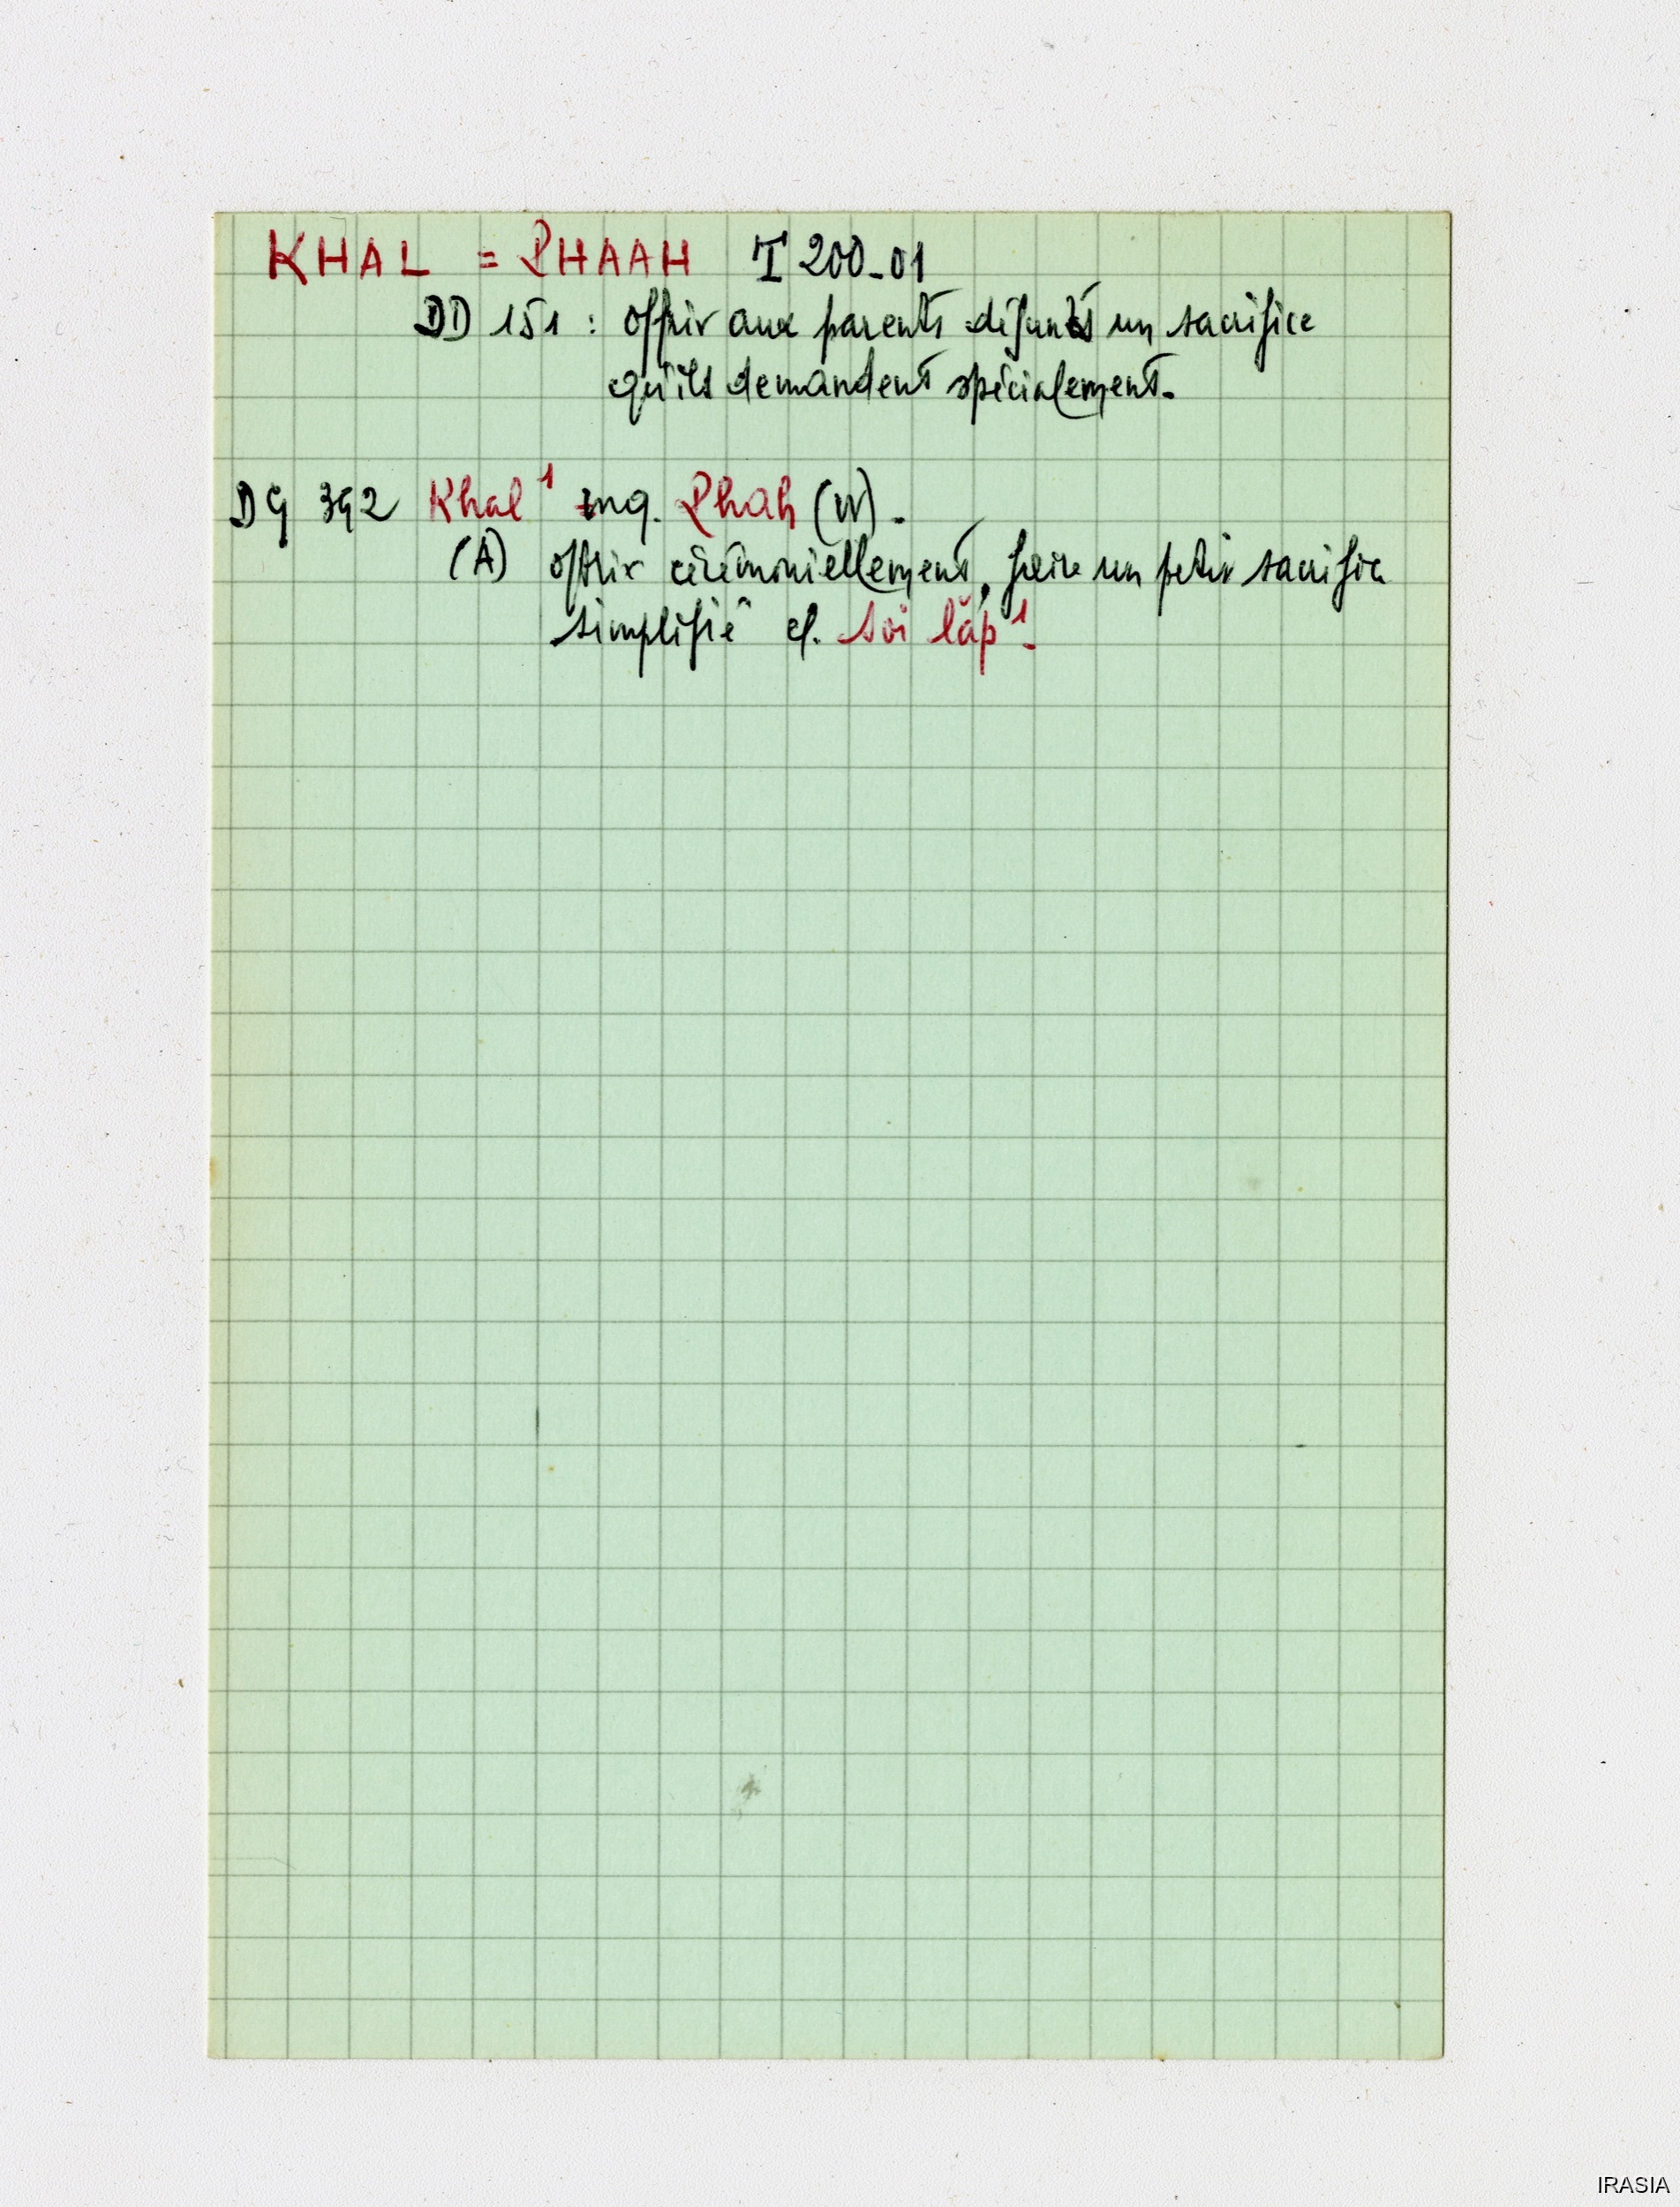 KHAL = PHAAH T 200-01
DD 151 : offrir aux parents défunts un sacrifice
qu'ils demandent spécialement.
DG 392 Khal¹ mg. Phah (W).
(A) offrir cérémoniellement, faire un petit sacrifice
simplifié cf. soi lăp¹.
IRASIA